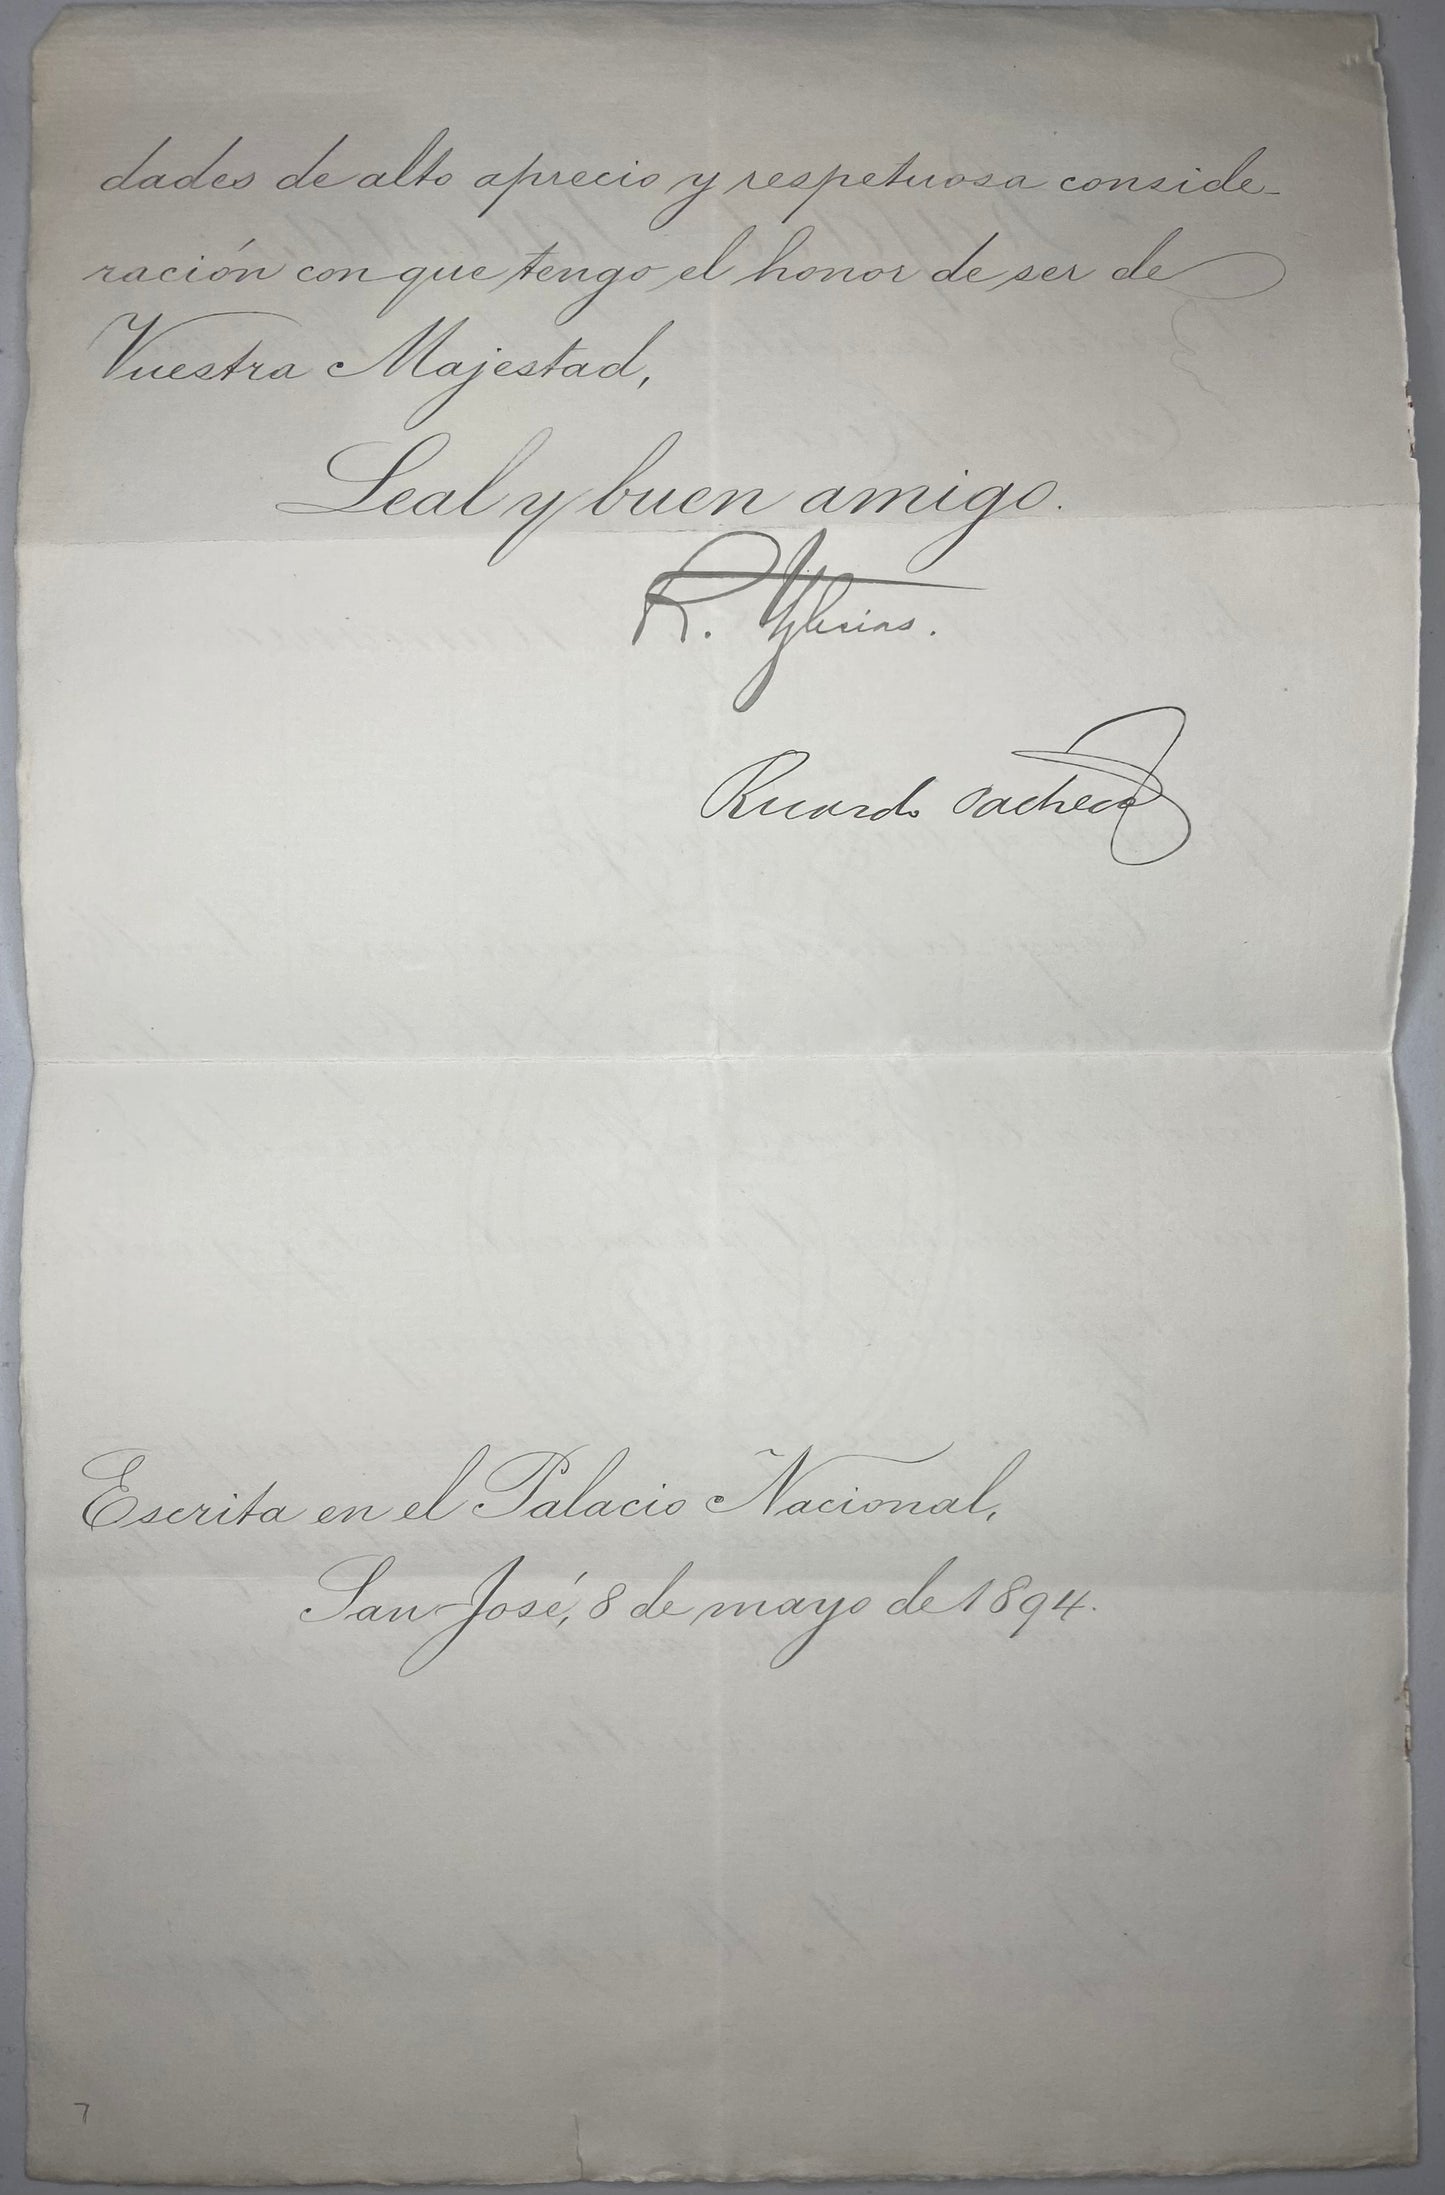 dades de alto aprecio y respetuosa conside-
ración con que tengo el honor de ser de
Vuestra Majestad,
Leal y buen amigo.
R. Yglesias.
Ricardo Pacheco
Escrita en el Palacio Nacional,
San José, 8 de mayo de 1894.
7